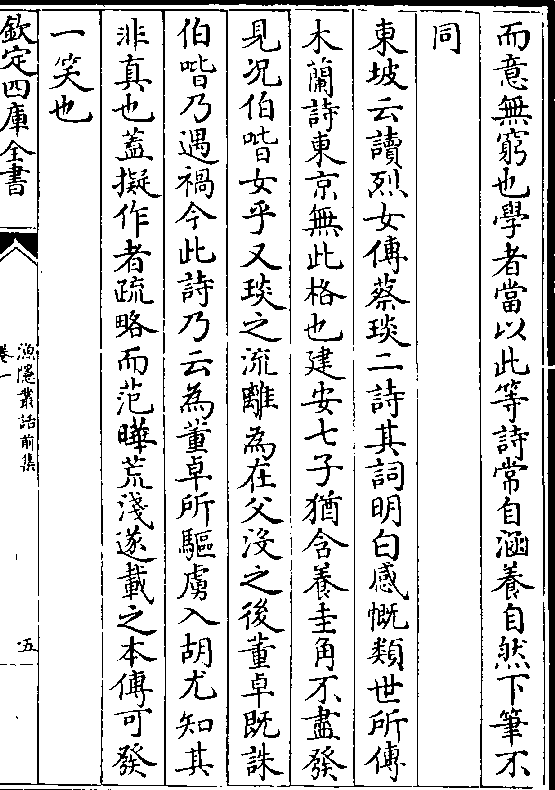 而意無窮也學者當以此等詩常自涵養自然下筆不
同
東坡云讀烈女傳蔡琰二詩其詞明白感慨類世所傳
木蘭詩東京無此格也建安七子猶含養圭角不盡發
見况伯喈女乎又琰之流離為在父沒之後董卓既誅
伯喈乃遇禍今此詩乃云為董卓所驅虜入胡尤知其
非真也蓋擬作者疏略而范曄荒淺遂載之本傳可發
一笑也
欽定四庫全書
漁隱叢話前集
卷一
五